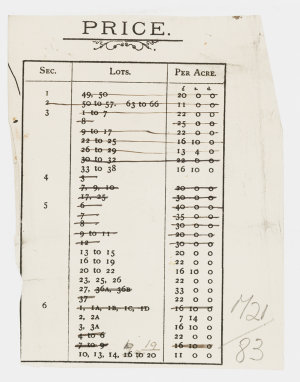 PRICE.
SEC. LOTS. PER ACRE.
£ s. d.
1 49, 50 20 0 0
2 50 to 57. 63 to 66 11 0 0
3 1 to 7 22 0 0
8 25 0 0
9 to 17 22 0 0
22 to 25 16 10 0
26 to 29 13 4 0
30 to 32 22 0 0
33 to 38 16 10 0
4 3
7, 9, 10 20 0 0
17, 25 30 0 0
5 6 40 0 0
7 35 0 0
8 30 0 0
9 to 11 20 0 0
12 30 0 0
13 to 15 20 0 0
16 to 19 22 0 0
20 to 22 16 10 0
23, 25, 26 22 0 0
27, 36A, 36B 33 0 0
37 22 0 0
6 1, 1A, 1B, 1C, 1D 16 10 0
2, 2A 7 14 0
3, 3A 16 10 0
4 to 6 22 0 0
7 to 9 19 16 10 0
10, 13, 14, 16 to 20 11 0 0
M21
83